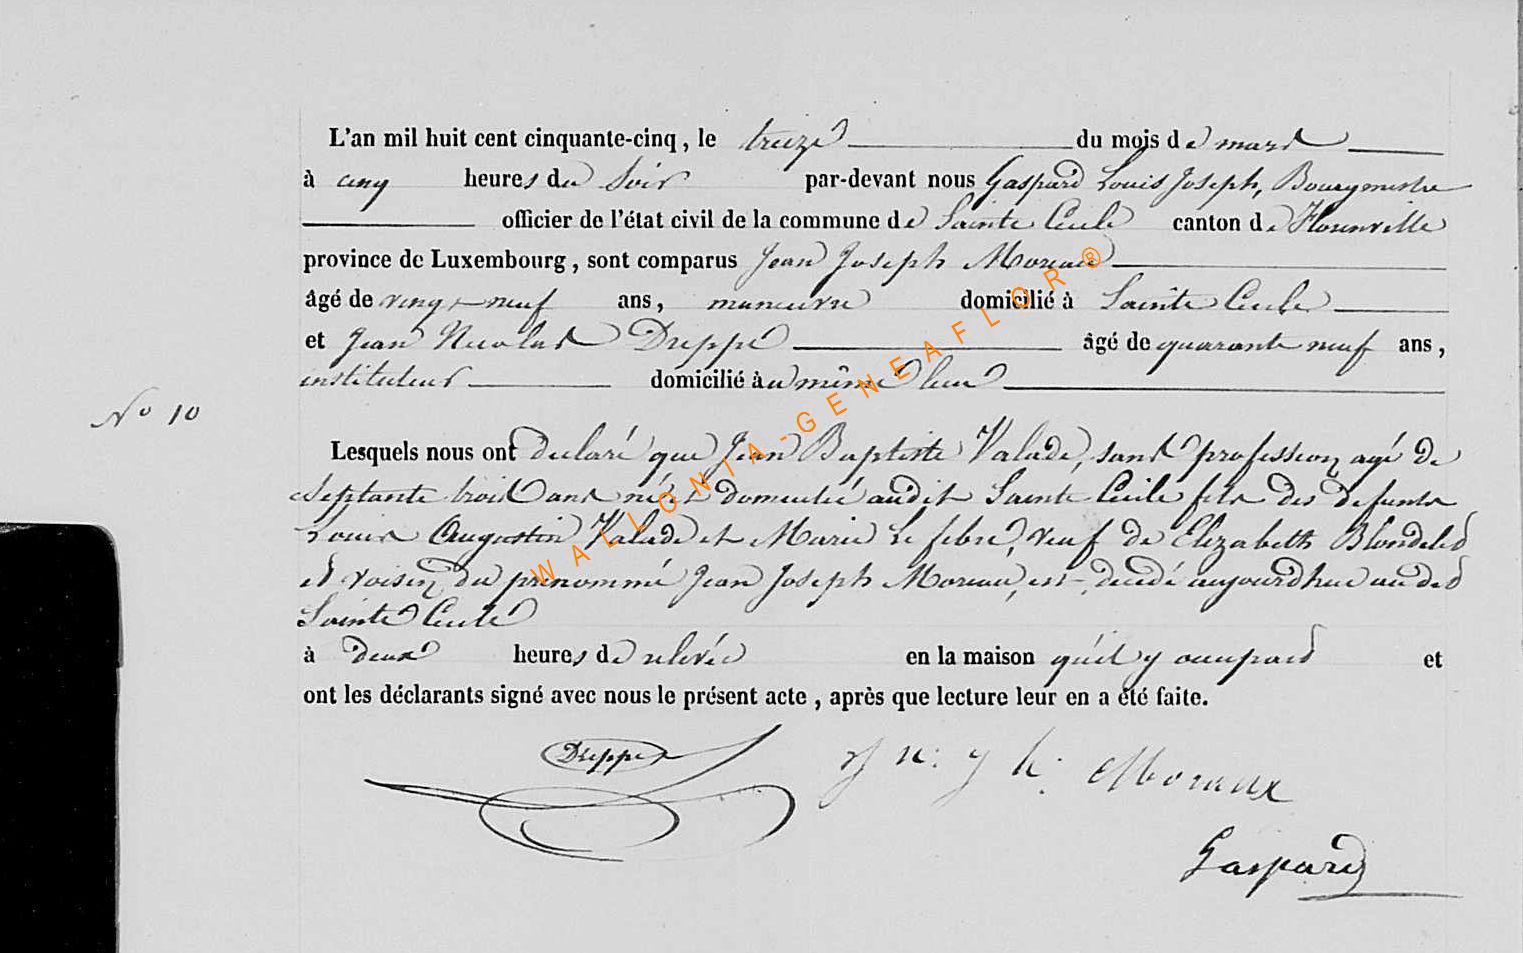 L'an mil huit cent cinquante-cinq, le treize du mois de mars
à cinq heures du Soir par-devant nous Gaspard Louis Joseph, Bourgmestre
officier de l'état civil de la commune de Sainte Cecile canton de Florenville
province de Luxembourg, sont comparus Jean Joseph Moreau
âgé de vingt-neuf ans, manœuvre domicilié à Sainte Cecile
et Jean Nicolas Dreppe âgé de quarante neuf ans,
instituteur domicilié au même lieu
N° 10
Lesquels nous ont declaré que Jean Baptiste Valade, sans profession agé de
Septante trois ans né et domicilié audit Sainte Cécile fils des defunts
Louis Augustin Valade et Marie Le febre, veuf de Elizabeth Blondeled
et voisin du prénommé Jean Joseph Moreau, est decedé aujourdhui audit
Sainte Cecile
à deux heures de relevée en la maison qu'il y occupait et
ont les déclarants signé avec nous le présent acte, après que lecture leur en a été faite.
Dreppe Moraux
Gaspard
WALLONIA-GENEAFLOR®